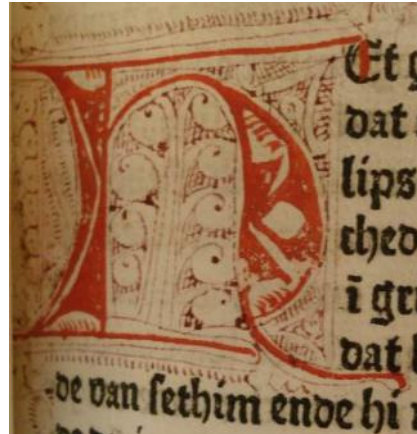 Et
dat
lips
ched
ī gr
dat
de van sethim ende hi